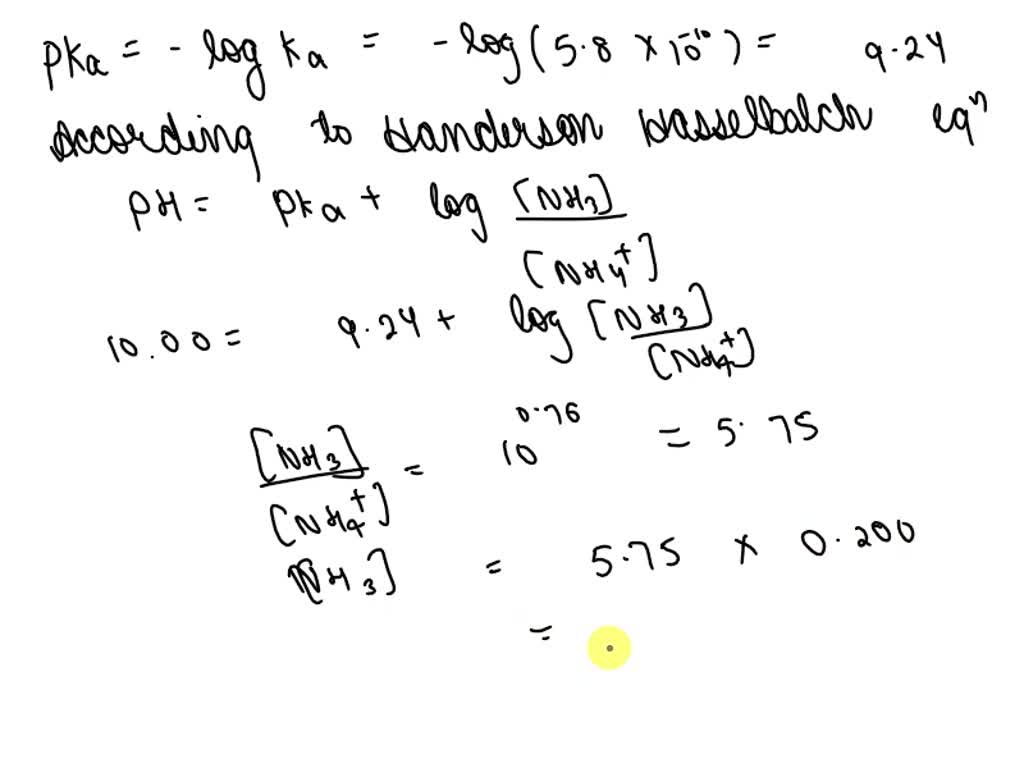 pKa = - log Ka = - log ( 5.8 × 10⁻¹⁰ ) = 9.24
According to Handerson Hasselbalch eqⁿ
pH = pKa + log [NH₃] / [NH₄⁺]
10.00 = 9.24 + log [NH₃] / [NH₄⁺]
[NH₃] / [NH₄⁺] = 10^0.76 = 5.75
[NH₃] = 5.75 × 0.200
=